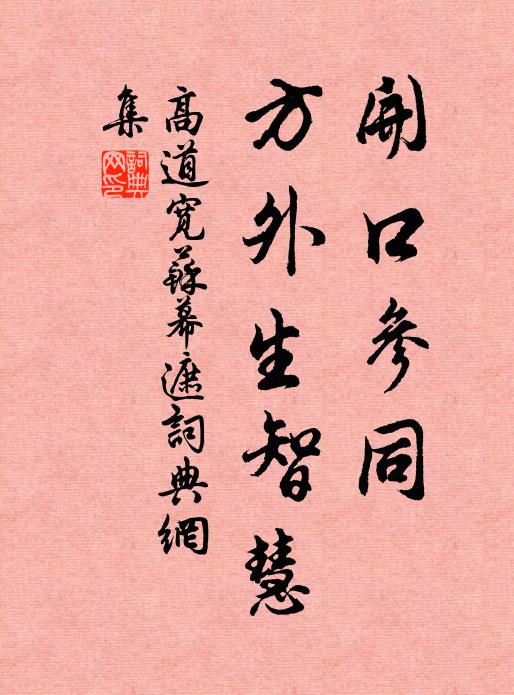 開口參同
方外生智慧
高道寬蘇幕遮詞典網
集
詞典
网印